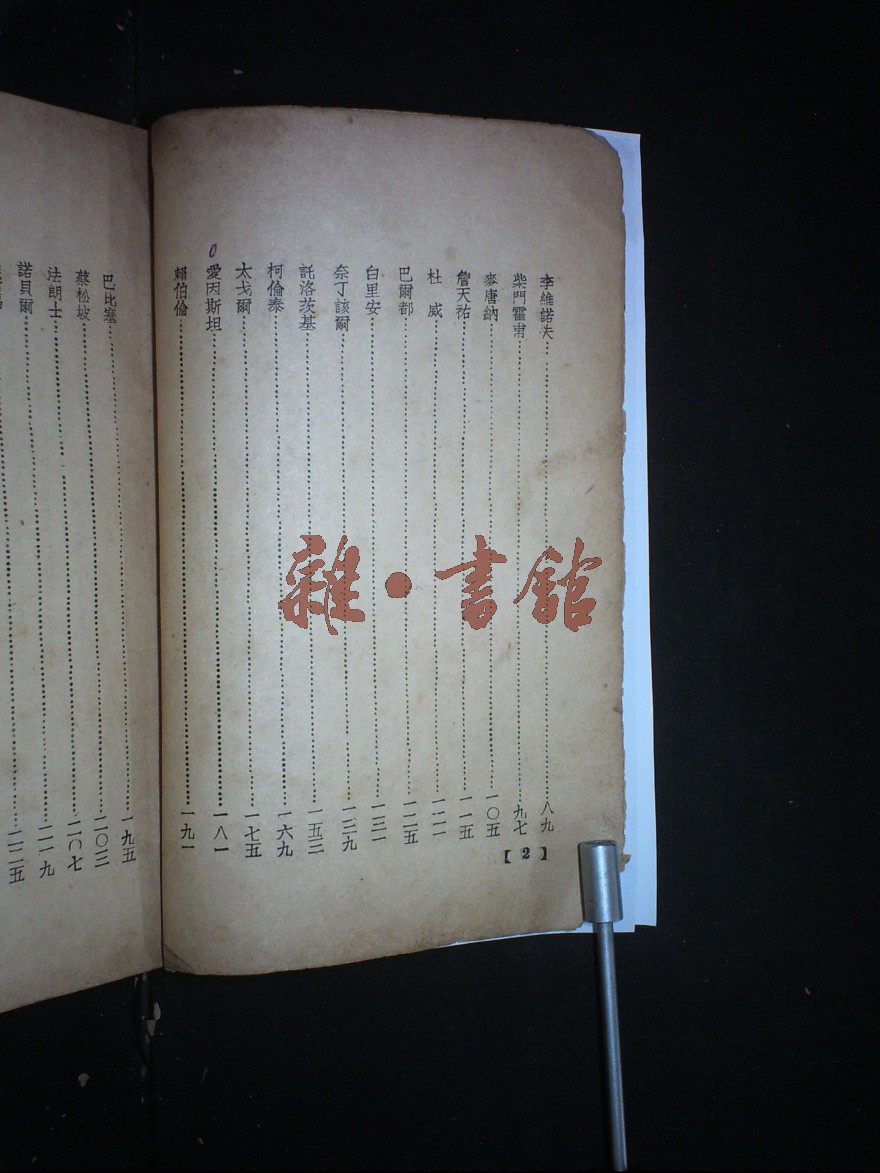 李維諾夫……八九
柴門霍甫……九七
麥唐納……一〇五
詹天祐……一一五
杜威……一二一
巴爾都……一二五
白里安……一三一
奈丁該爾……一三九
託洛茨基……一五三
柯倫泰……一六九
太戈爾……一七五
愛因斯坦……一八一
賴伯倫……一九一
【2】
巴比塞……一九五
蔡松坡……二〇三
法朗士……二〇七
諾貝爾……二一九
二二五
雜·書館